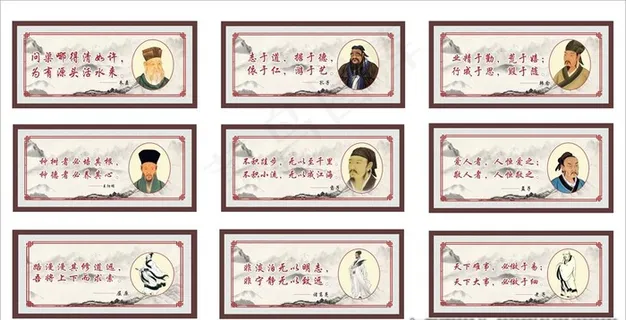 问渠哪得清如许,
为有源头活水来
朱熹
志于道,据于德,
依于仁,游于艺
孔子
业精于勤,荒于嬉;
行成于思,毁于随
韩愈
种树者必培其根,
种德者必养其心
王阳明
不积跬步,无以至千里
不积小流,无以成江海
荀子
爱人者,人恒爱之;
敬人者,人恒敬之
孟子
路漫漫其修道远
吾将上下而求索
屈原
非淡泊无以明志,
非宁静无以致远
诸葛亮
天下难事,必做于易;
天下大事,必做于细
老子